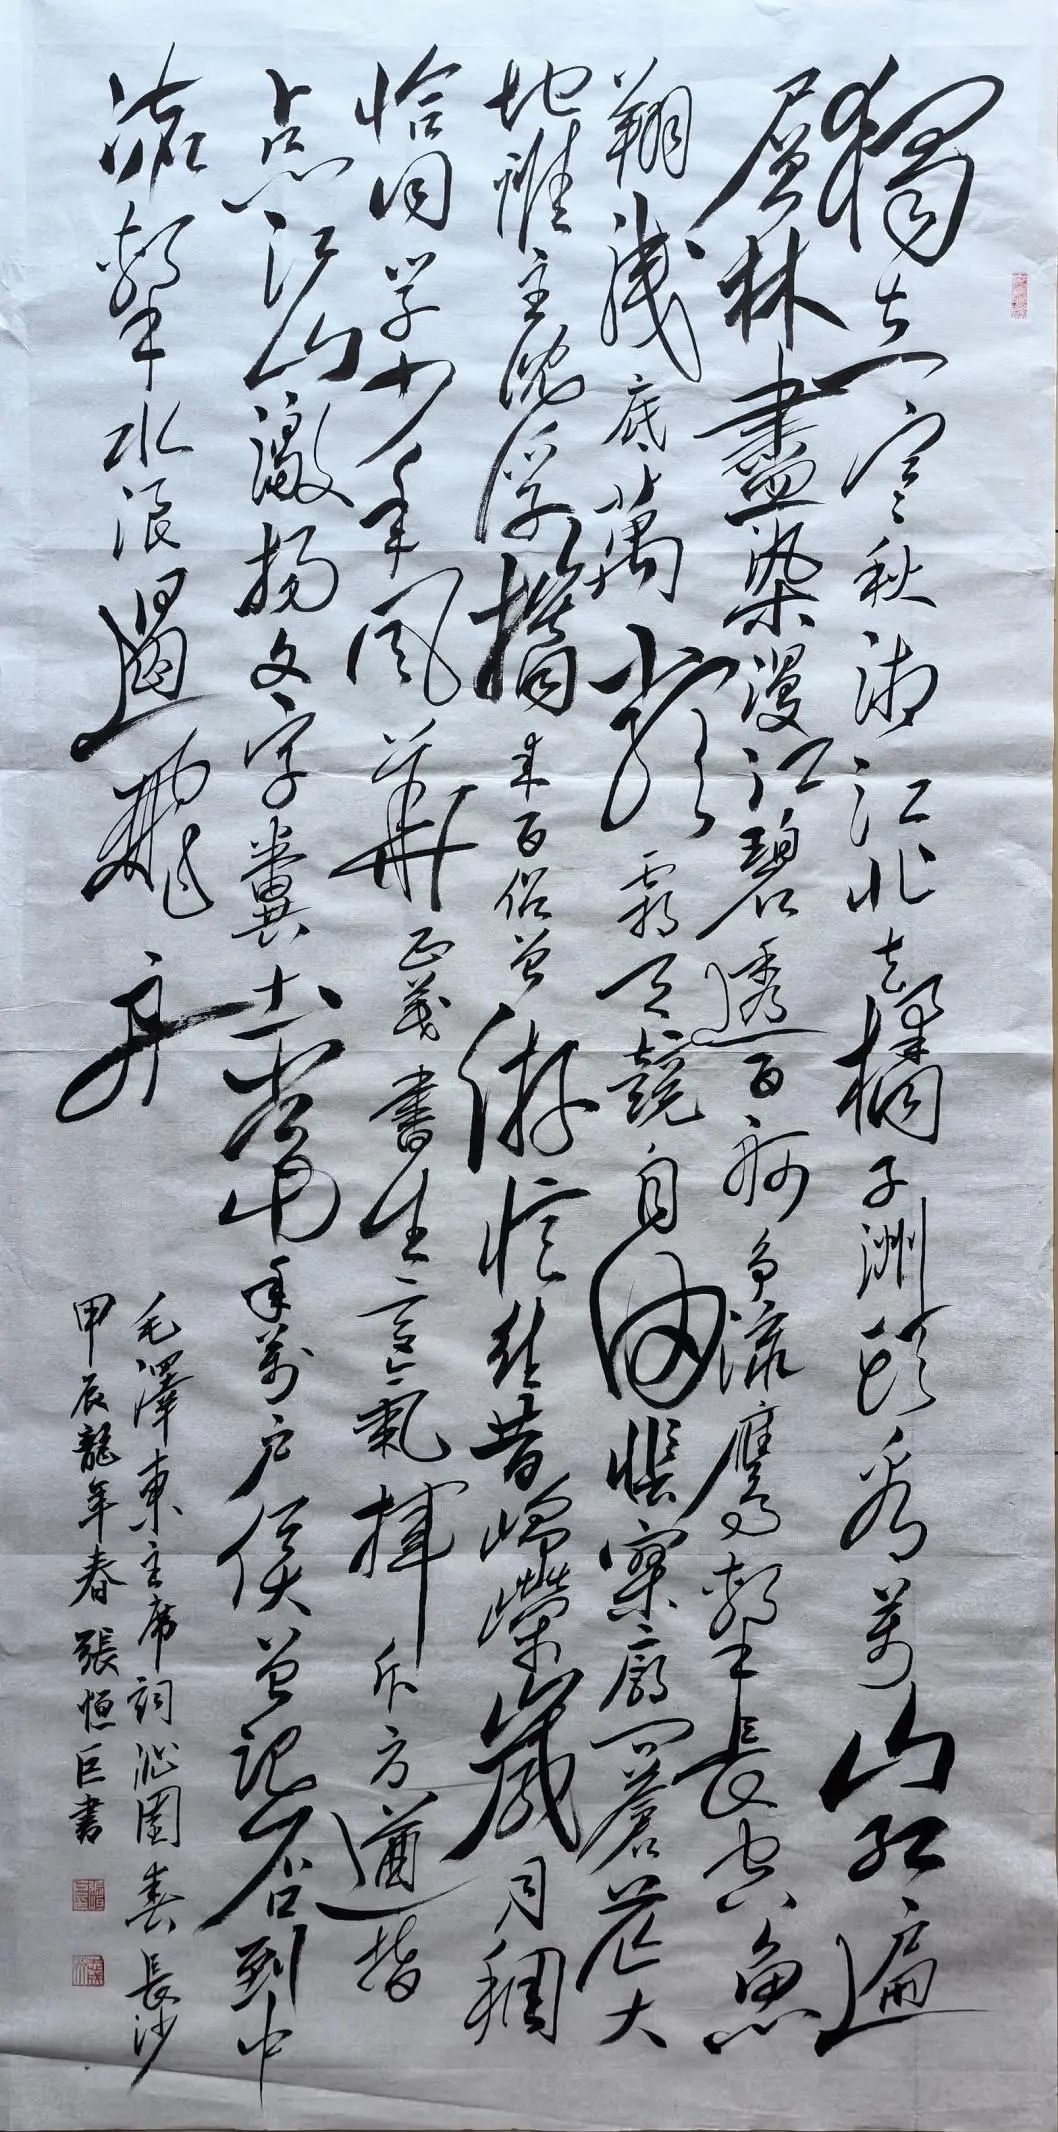 獨立寒秋湘江北去橘子洲頭看萬山紅遍
層林盡染漫江碧透百舸爭流鷹擊長空魚
翔淺底萬類霜天競自由悵寥廓問蒼茫大
地誰主沈浮攜來百侶曾游憶往昔崢嶸歲月稠
恰同學少年風華正茂書生意氣揮斥方遒指
点江山激揚文字糞土當年萬戶侯曾記否到中
流擊水浪遏飛舟
毛澤東主席詞沁園春長沙
甲辰龍年春張恒巨書